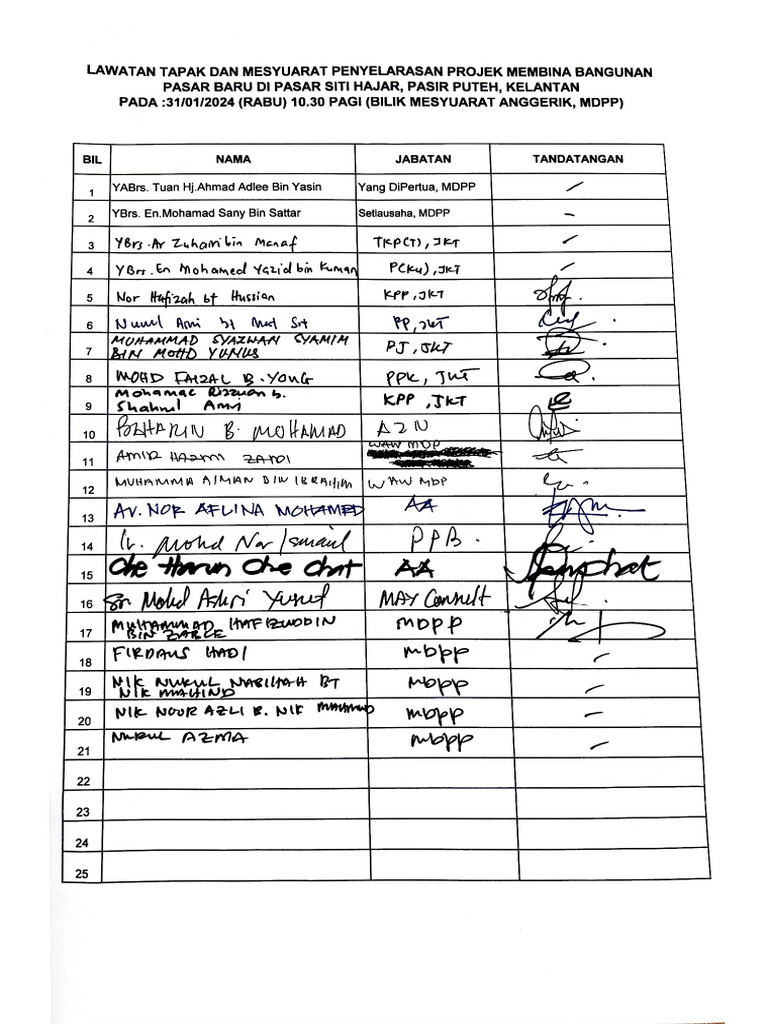 LAWATAN TAPAK DAN MESYUARAT PENYELARASAN PROJEK MEMBINA BANGUNAN
PASAR BARU DI PASAR SITI HAJAR, PASIR PUTEH, KELANTAN
PADA :31/01/2024 (RABU) 10.30 PAGI (BILIK MESYUARAT ANGGERIK, MDPP)
BIL NAMA JABATAN TANDATANGAN
1 YABrs. Tuan Hj.Ahmad Adlee Bin Yasin Yang DiPertua, MDPP
2 YBrs. En.Mohamad Sany Bin Sattar Setiausaha, MDPP
3 YBrs. Ar Zuhairi bin Manaf TKP(T), JKT
4 YBrs. En Mohamed Yazid bin Kuman P(KU), JKT
5 Nor Hafizah bt Hussian KPP, JKT
6 Nurul Ami bt Md PP, JKT
7 MUHAMMAD SYAZWAN SYAMIM
BIN MOHD YUNUS PJ, JKT
8 MOHD FAIZAL B. YONG PPK, JKT
9 Mohamad Rizzuan b.
Shahrul Amri KPP, JKT
10 BAHARIN B. MOHAMAD AZN
WAW MDP
11 AMIR HAZMI ZAIDI
12 MUHAMMA AIMAN BIN IBRAHIM WAW MDP
13 Ar. NOR AFLINA MOHAMED AA
14 Ir. Mohd Nor Ismail PPB.
15 Che Harun Che Chat AA
16 Sr. Mohd Ashri Yusuf MAY Consult
17 MUHAMMAD HAFIZUDDIN
BIN ZABLE MDPP
18 FIRDAUS HADI MDPP
19 NIK NURUL NABIHAH BT
NIK MAHIND MDPP
20 NIK NOOR AZLI B. NIK MAHMUD MDPP
21 NURUL AZMA MDPP
22
23
24
25